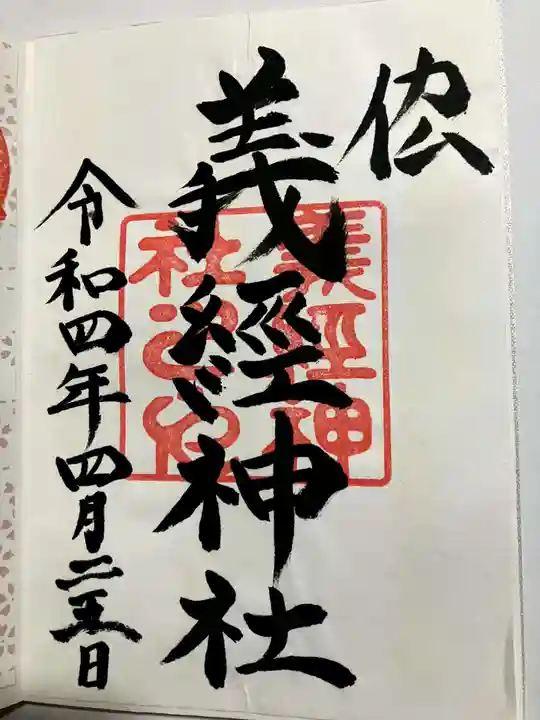 義經神社
令和四年四月二十三日
義經神
社之印